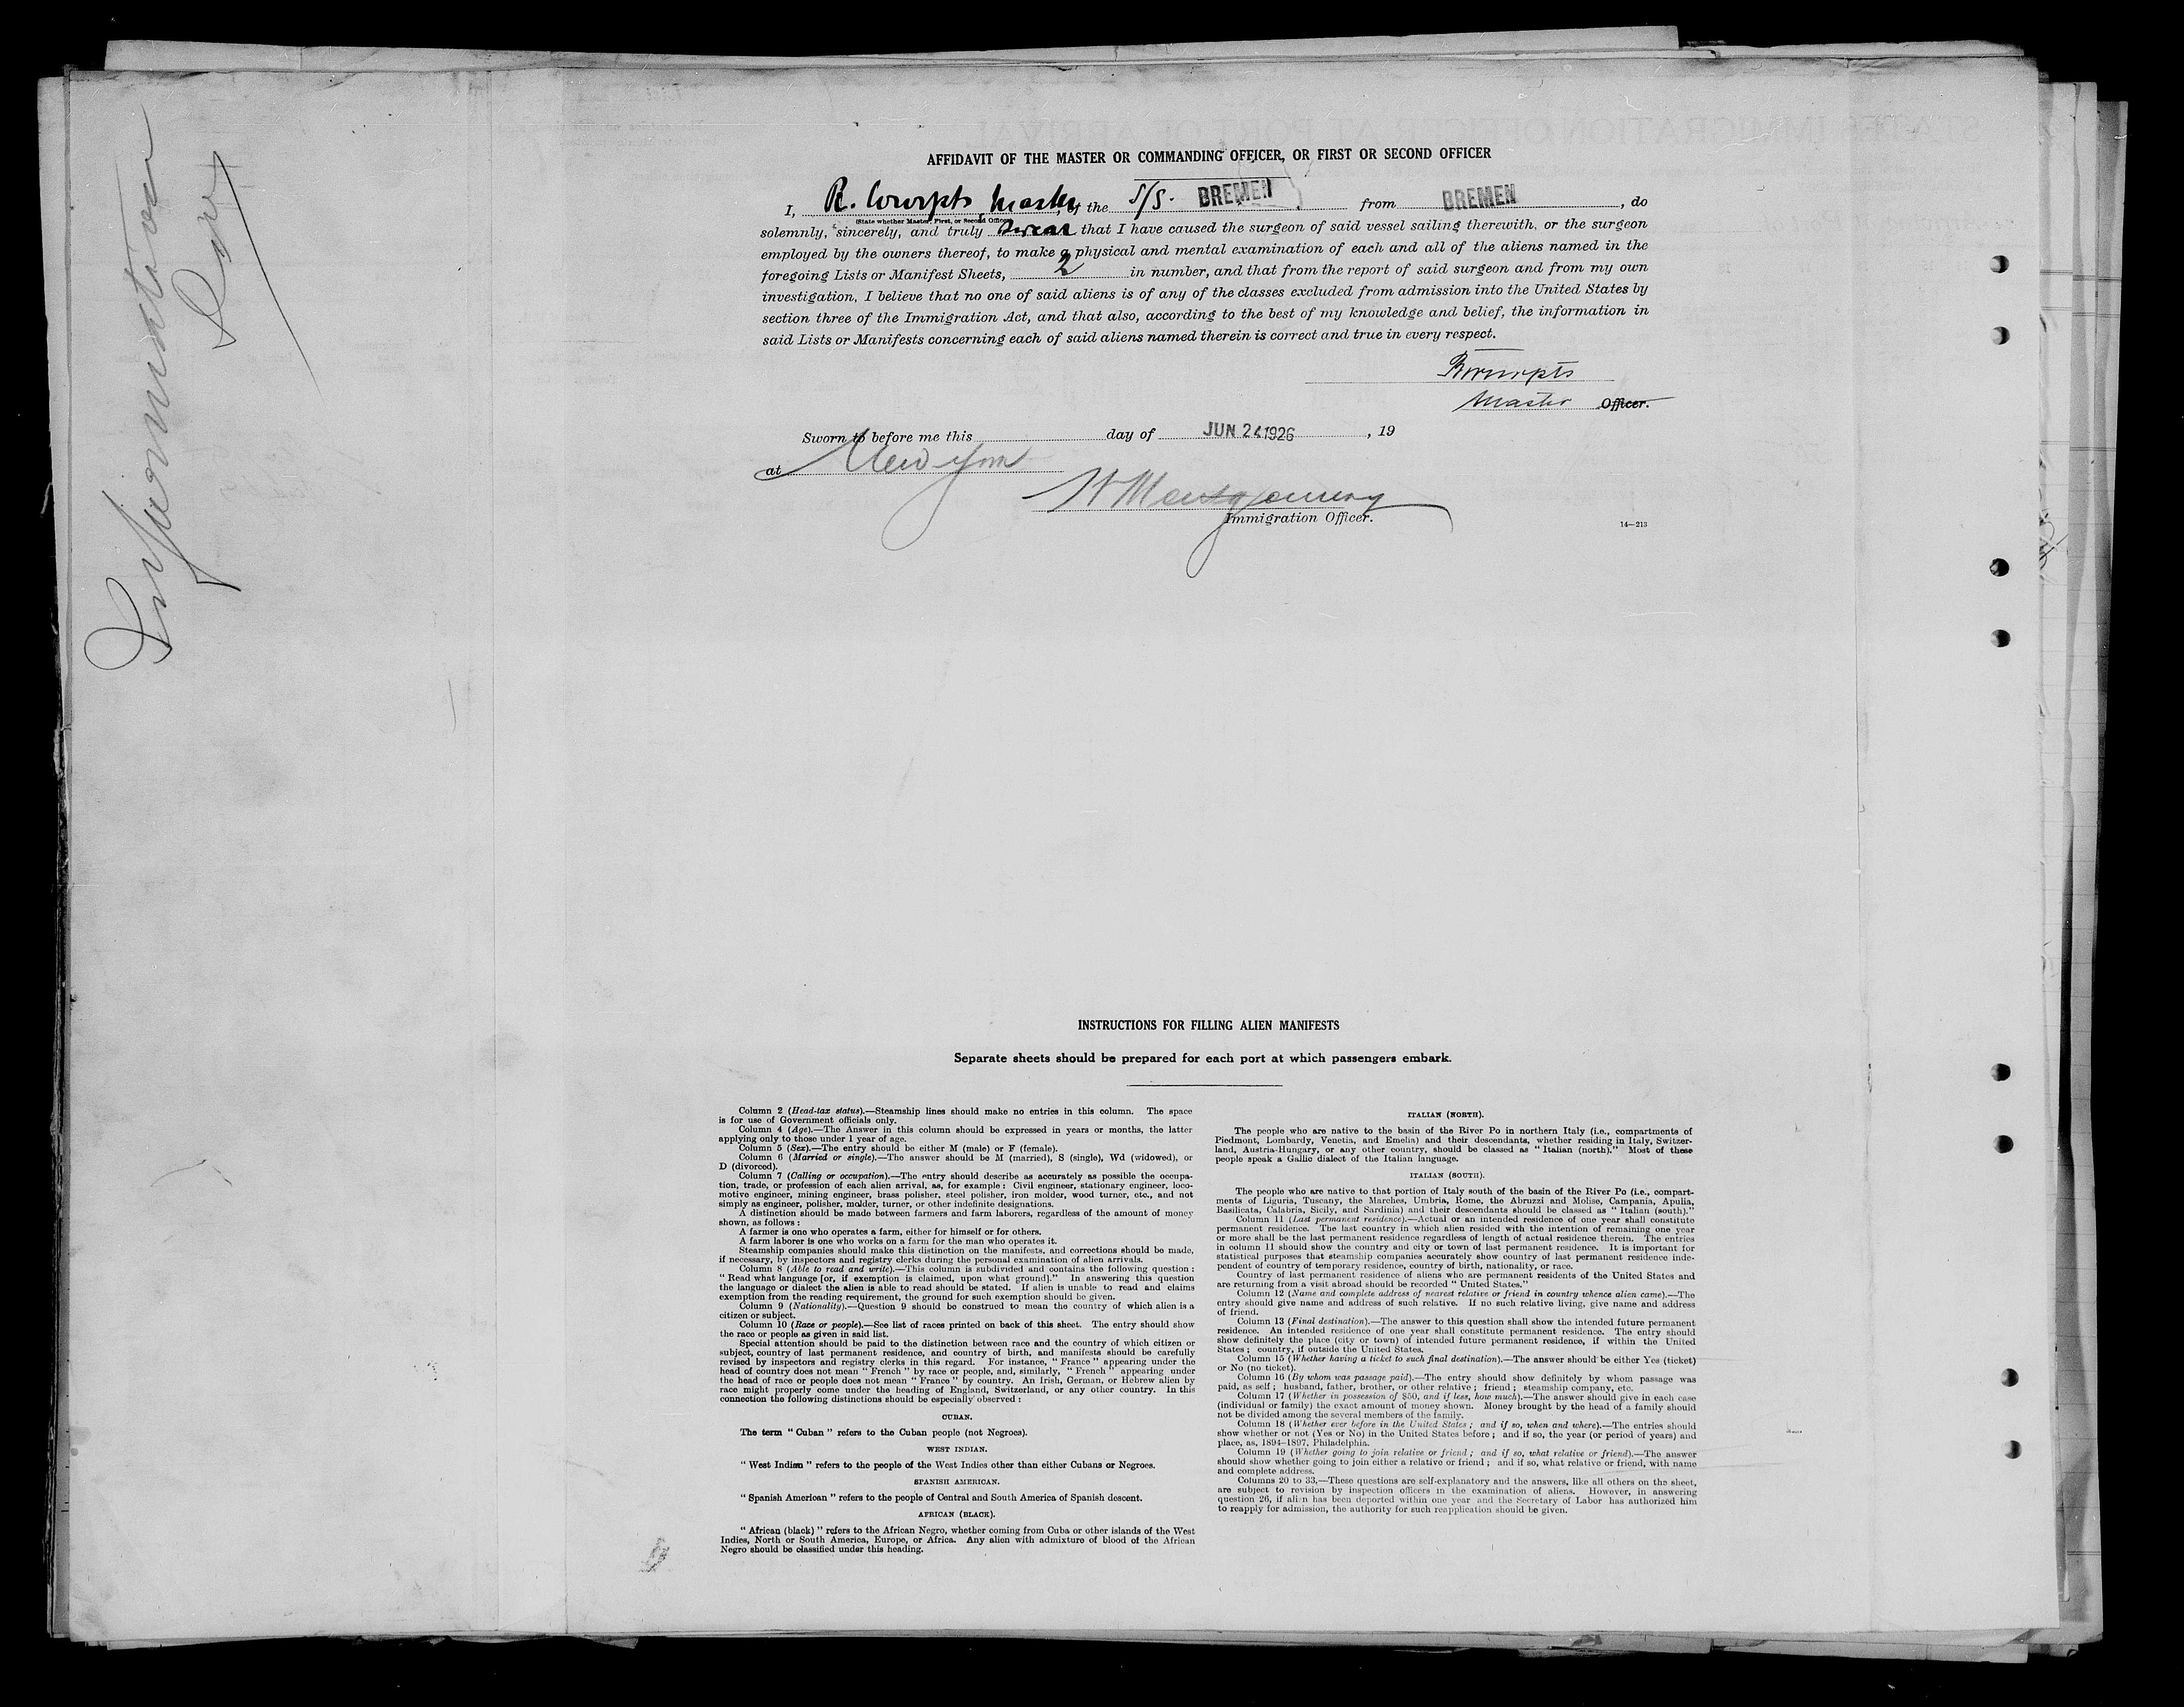 AFFIDAVIT OF THE MASTER OR COMMANDING OFFICER, OR FIRST OR SECOND OFFICER
I, R. Wurpts, Master, of the S/S. BREMEN from BREMEN, do
(State whether Master, First, or Second Officer)
solemnly, sincerely, and truly swear that I have caused the surgeon of said vessel sailing therewith, or the surgeon
employed by the owners thereof, to make a physical and mental examination of each and all of the aliens named in the
foregoing Lists or Manifest Sheets, 2 in number, and that from the report of said surgeon and from my own
investigation, I believe that no one of said aliens is of any of the classes excluded from admission into the United States by
section three of the Immigration Act, and that also, according to the best of my knowledge and belief, the information in
said Lists or Manifests concerning each of said aliens named therein is correct and true in every respect.
Master Officer.
Sworn to before me this day of JUN 24 1926, 19
at New York
Montgomery
Immigration Officer.
14—213
INSTRUCTIONS FOR FILLING ALIEN MANIFESTS
Separate sheets should be prepared for each port at which passengers embark.
Column 2 (Head-tax status).—Steamship lines should make no entries in this column. The space
is for use of Government officials only.
Column 4 (Age).—The Answer in this column should be expressed in years or months, the latter
applying only to those under 1 year of age.
Column 5 (Sex).—The entry should be either M (male) or F (female).
Column 6 (Married or single).—The answer should be M (married), S (single), Wd (widowed), or
D (divorced).
Column 7 (Calling or occupation).—The entry should describe as accurately as possible the occupa-
tion, trade, or profession of each alien arrival, as, for example: Civil engineer, stationary engineer, loco-
motive engineer, mining engineer, brass polisher, steel polisher, iron molder, wood turner, etc., and not
simply as engineer, polisher, molder, turner, or other indefinite designations.
A distinction should be made between farmers and farm laborers, regardless of the amount of money
shown, as follows:
A farmer is one who operates a farm, either for himself or for others.
A farm laborer is one who works on a farm for the man who operates it.
Steamship companies should make this distinction on the manifests, and corrections should be made,
if necessary, by inspectors and registry clerks during the personal examination of alien arrivals.
Column 8 (Able to read and write).—This column is subdivided and contains the following question:
" Read what language [or, if exemption is claimed, upon what ground]." In answering this question
the language or dialect the alien is able to read should be stated. If alien is unable to read and claims
exemption from the reading requirement, the ground for such exemption should be given.
Column 9 (Nationality).—Question 9 should be construed to mean the country of which alien is a
citizen or subject.
Column 10 (Race or people).—See list of races printed on back of this sheet. The entry should show
the race or people as given in said list.
Special attention should be paid to the distinction between race and the country of which citizen or
subject, country of last permanent residence, and country of birth, and manifests should be carefully
revised by inspectors and registry clerks in this regard. For instance, " France " appearing under the
head of country does not mean " French " by race or people, and, similarly, " French " appearing under
the head of race or people does not mean " France " by country. An Irish, German, or Hebrew alien by
race might properly come under the heading of England, Switzerland, or any other country. In this
connection the following distinctions should be especially observed:
CUBAN.
The term " Cuban " refers to the Cuban people (not Negroes).
WEST INDIAN.
" West Indian " refers to the people of the West Indies other than either Cubans or Negroes.
SPANISH AMERICAN.
" Spanish American " refers to the people of Central and South America of Spanish descent.
AFRICAN (BLACK).
" African (black) " refers to the African Negro, whether coming from Cuba or other islands of the West
Indies, North or South America, Europe, or Africa. Any alien with admixture of blood of the African
Negro should be classified under this heading.
ITALIAN (NORTH).
The people who are native to the basin of the River Po in northern Italy (i.e., compartments of
Piedmont, Lombardy, Venetia, and Emelia) and their descendants, whether residing in Italy, Switzer-
land, Austria-Hungary, or any other country, should be classed as " Italian (north)." Most of these
people speak a Gallic dialect of the Italian language.
ITALIAN (SOUTH).
The people who are native to that portion of Italy south of the basin of the River Po (i.e., compart-
ments of Liguria, Tuscany, the Marches, Umbria, Rome, the Abruzzi and Molise, Campania, Apulia,
Basilicata, Calabria, Sicily, and Sardinia) and their descendants should be classed as " Italian (south)."
Column 11 (Last permanent residence).—Actual or an intended residence of one year shall constitute
permanent residence. The last country in which alien resided with the intention of remaining one year
or more shall be the last permanent residence regardless of length of actual residence therein. The entries
in column 11 should show the country and city or town of last permanent residence. It is important for
statistical purposes that steamship companies accurately show country of last permanent residence inde-
pendent of country of temporary residence, country of birth, nationality, or race.
Country of last permanent residence of aliens who are permanent residents of the United States and
are returning from a visit abroad should be recorded " United States."
Column 12 (Name and complete address of nearest relative or friend in country whence alien came).—The
entry should give name and address of such relative. If no such relative living, give name and address
of friend.
Column 13 (Final destination).—The answer to this question shall show the intended future permanent
residence. An intended residence of one year shall constitute permanent residence. The entry should
show definitely the place (city or town) of intended future permanent residence, if within the United
States; country, if outside the United States.
Column 15 (Whether having a ticket to such final destination).—The answer should be either Yes (ticket)
or No (no ticket).
Column 16 (By whom was passage paid).—The entry should show definitely by whom passage was
paid, as self; husband, father, brother, or other relative; friend; steamship company, etc.
Column 17 (Whether in possession of $50, and if less, how much).—The answer should give in each case
(individual or family) the exact amount of money shown. Money brought by the head of a family should
not be divided among the several members of the family.
Column 18 (Whether ever before in the United States; and if so, when and where).—The entries should
show whether or not (Yes or No) in the United States before; and if so, the year (or period of years) and
place, as, 1894-1897, Philadelphia.
Column 19 (Whether going to join relative or friend; and if so, what relative or friend).—The answer
should show whether going to join either a relative or friend; and if so, what relative or friend, with name
and complete address.
Columns 20 to 33.—These questions are self-explanatory and the answers, like all others on the sheet,
are subject to revision by inspection officers in the examination of aliens. However, in answering
question 26, if alien has been deported within one year and the Secretary of Labor has authorized him
to reapply for admission, the authority for such reapplication should be given.